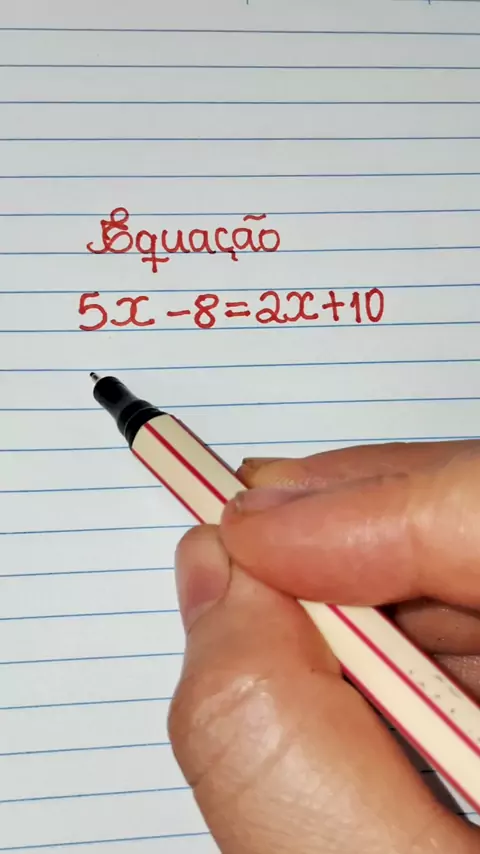 Equação
5x - 8 = 2x + 10